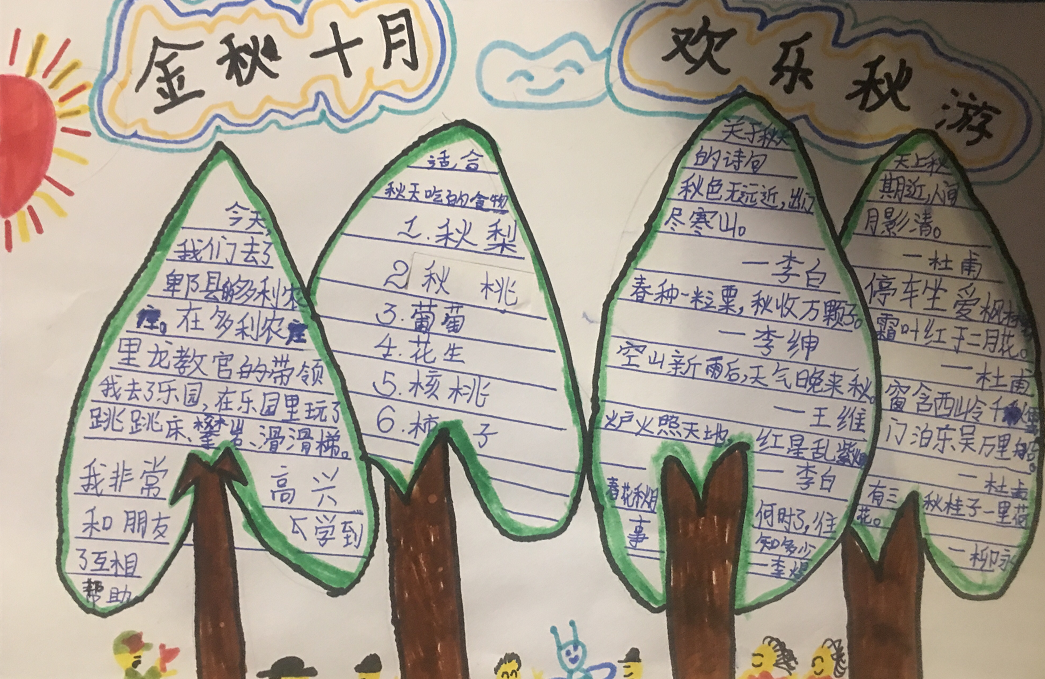 金秋十月
欢乐秋游
今天
我们去了
郫县的多利农
庄。在多利农庄
里龙教官的带领
我去了乐园,在乐园里玩了
跳跳床、攀岩、滑滑梯。
我非常高兴
和朋友学到
了互相
帮助。
适合
秋天吃的食物
1.秋梨
2秋桃
3.葡萄
4.花生
5.核桃
6.柿子
关于秋天
的诗句
秋色无远近,出门
尽寒山。
一李白
春种一粒粟,秋收万颗子。
一李绅
空山新雨后,天气晚来秋。
一王维
炉火照天地红星乱紫烟
一李白
春花秋月何时了,往
事知多少
一李煜
天上秋
期近,人间
月影清。
一杜甫
停车坐爱枫林
霜叶红于二月花。
一杜甫
窗含西岭千秋雪
门泊东吴万里船。
一杜甫
有三秋桂子一里荷
花。
一柳永